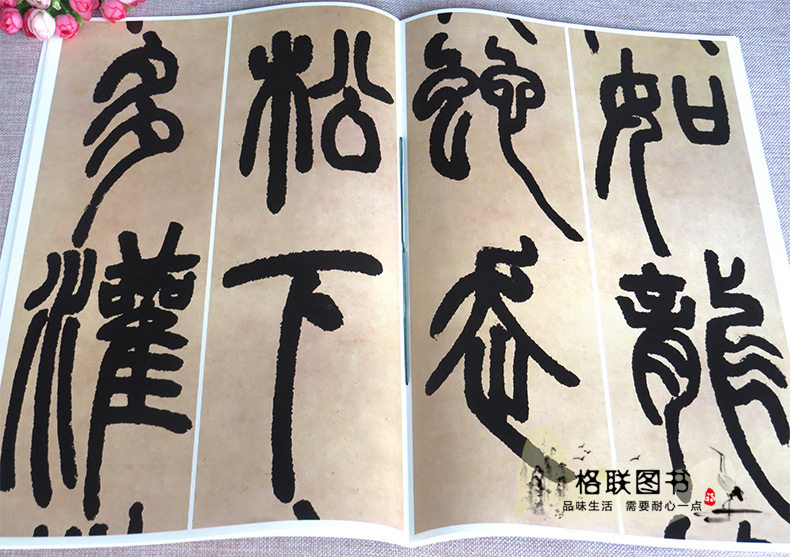 如龍
蛇走
松下
多灌
格联图书
品味生活 需要耐心一点